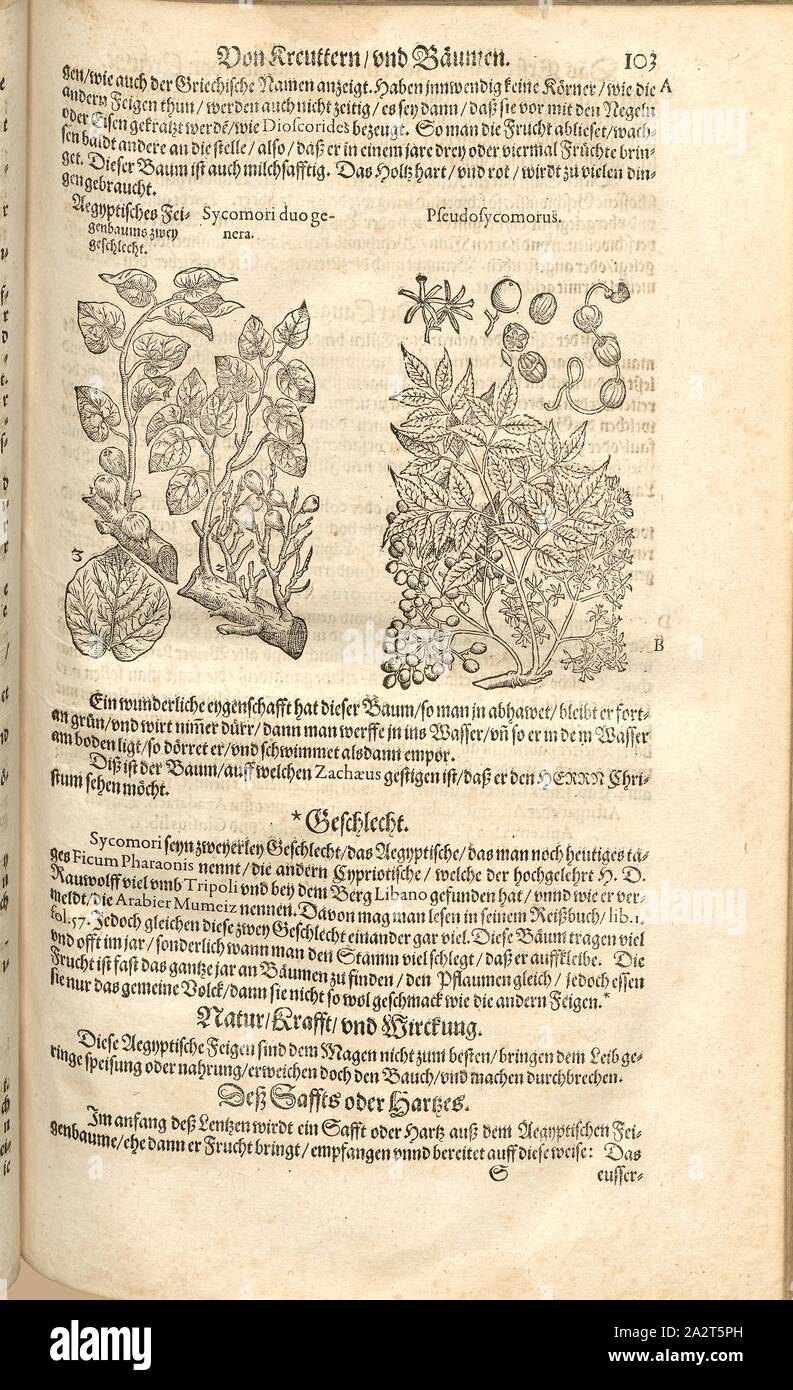 Von Kreuttern/ vnd Bäumen. 103
gen/ wie auch der Griechische Namen anzeigt. Haben jnnwendig keine Körner/ wie die A
andern Feigen thun/ werden auch nicht zeitig/ es sey dann/ daß sie vor mit den Negeln
oder Eisen gekratzt werdē/ wie Dioscorides bezeugt. So man die Frucht ablieset/ wach-
sen baldt andere an die stelle/ also/ daß er in einem jare drey oder viermal Früchte brin-
get. Dieser Baum ist auch milchsafftig. Das Holtz hart/ vnd rot/ wirdt zu vielen din-
gen gebraucht.
Aegyptisches Fei-
genbaums zwey
geschlecht.
Sycomori duo ge-
nera.
Pseudosycomorus.
3
2
B
Ein wunderliche eygenschafft hat dieser Baum/ so man jn abhawet/ bleibt er fort-
an grün/ vnd wirt nim̄er dürr/ dann man werffe jn ins Wasser/ vn̄ so er in dem Wasser
am boden ligt/ so dörret er/ vnd schwimmet alsdann empor.
Diß ist der Baum/ auff welchen Zachæus gestigen ist/ daß er den HERRN Chri-
stum sehen möcht.
*Geschlecht.
Sycomori seyn zweyerley Geschlecht/ das Aegyptische/ das man noch heutiges ta-
ges Ficum Pharaonis nennt/ die andern Cypriotische/ welche der hochgelehrt H. D.
Rauwolff viel vmb Tripoli vnd bey dem Berg Libano gefunden hat/ vnnd wie er ver-
meldt/ die Arabier Mumeiz nennen. Davon mag man lesen in seinem Reißbuch/ lib. 1.
fol. 57. Jedoch gleichen diese zwey Geschlecht einander gar viel. Diese Bäum tragen viel
vnd offt im jar/ sonderlich wann man den Stamm viel schlegt/ daß er auffkleibe. Die
Frucht ist fast das gantze jar an Bäumen zu finden/ den Pflaumen gleich/ jedoch essen
sie nur das gemeine Volck/ dann sie nicht so wol geschmack wie die andern Feigen.*
Natur/ Krafft/ vnd Wirckung.
Diese Aegyptische Feigen sind dem Magen nicht zum besten/ bringen dem Leib ge-
ringe speisung oder nahrung/ erweichen doch den Bauch/ vnd machen durchbrechen.
Deß Saffts oder Hartzes.
Im anfang deß Lentzen wirdt ein Safft oder Hartz auß dem Aegyptischen Fei-
genbaume/ ehe dann er Frucht bringt/ empfangen vnnd bereitet auff diese weise: Das
S eusser-
alamy
Image ID: 2A2T5PH
www.alamy.com